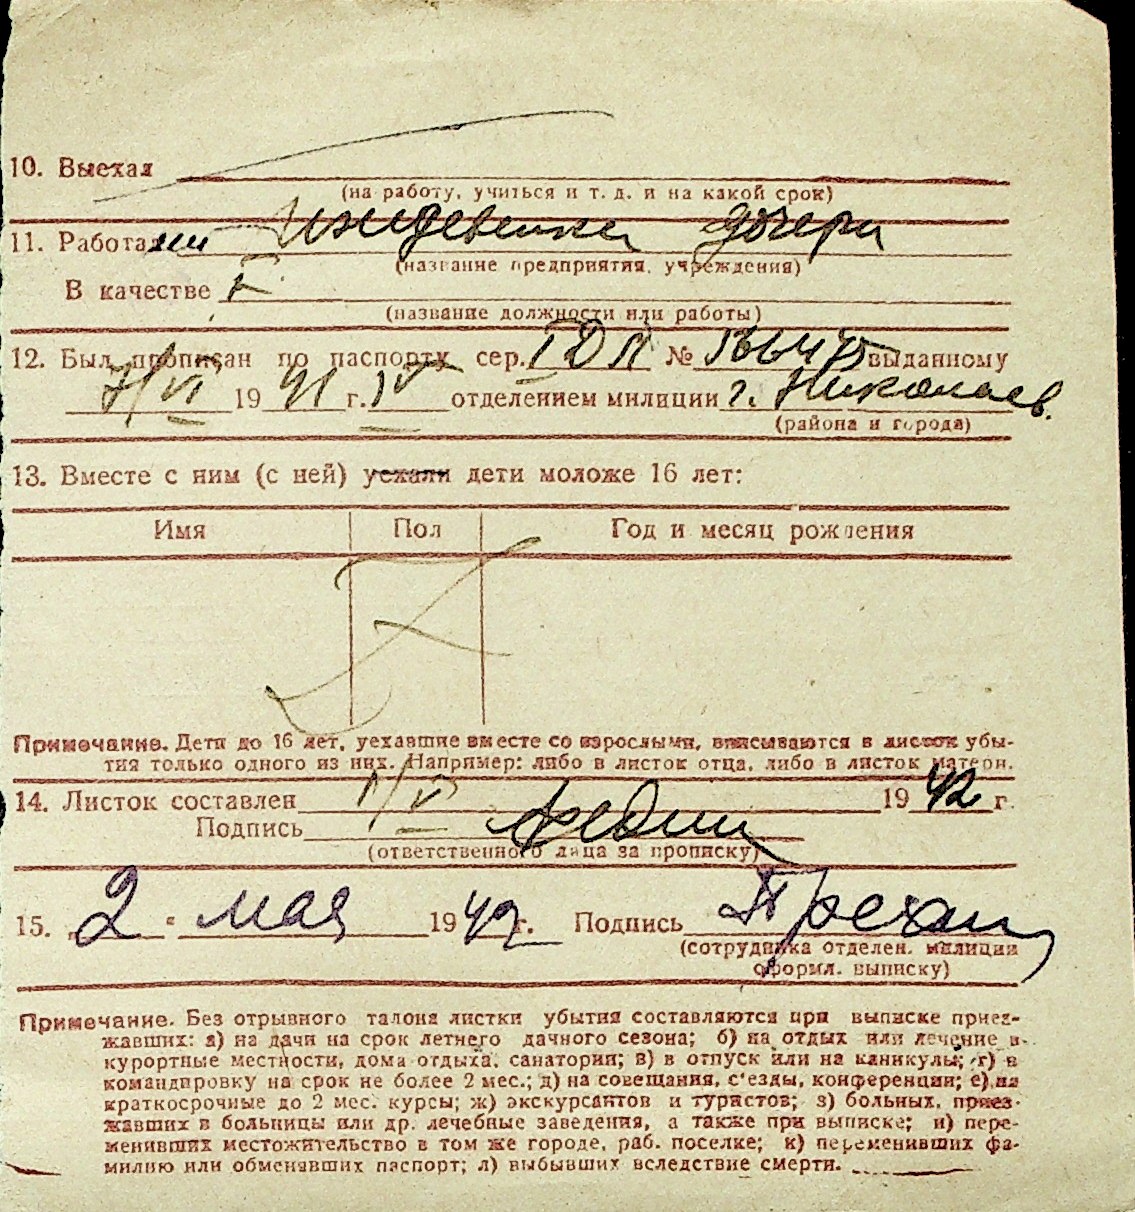 10. Выехал
(на работу, учиться и т. д. и на какой срок)
11. Работал Иждивенка дочери
(название предприятия, учреждения)
В качестве
(название должности или работы)
12. Был прописан по паспорту сер. № выданному
7/VI 1941 г. IV отделением милиции г. Николаев.
(района и города)
13. Вместе с ним (с ней) уехали дети моложе 16 лет:
Имя Пол Год и месяц рождения
Примечание. Дети до 16 лет, уехавшие вместе со взрослыми, вписываются в листок убы-
тия только одного из них. Например: либо в листок отца, либо в листок матери.
14. Листок составлен 1/V 1942 г.
Подпись
(ответственного лица за прописку)
15. 2 " мая 1942 г. Подпись
(сотрудника отделен. милиции
оформл. выписку)
Примечание. Без отрывного талона листки убытия составляются при выписке приез-
жавших: а) на дачи на срок летнего дачного сезона; б) на отдых или лечение в
курортные местности, дома отдыха, санатории; в) в отпуск или на каникулы; г) в
командировку на срок не более 2 мес.; д) на совещания, с'езды, конференции; е) на
краткосрочные до 2 мес. курсы; ж) экскурсантов и туристов; з) больных, приез-
жавших в больницы или др. лечебные заведения, а также при выписке; и) пере-
менивших местожительство в том же городе, раб. поселке; к) переменивших фа-
милию или обменявших паспорт; л) выбывших вследствие смерти.